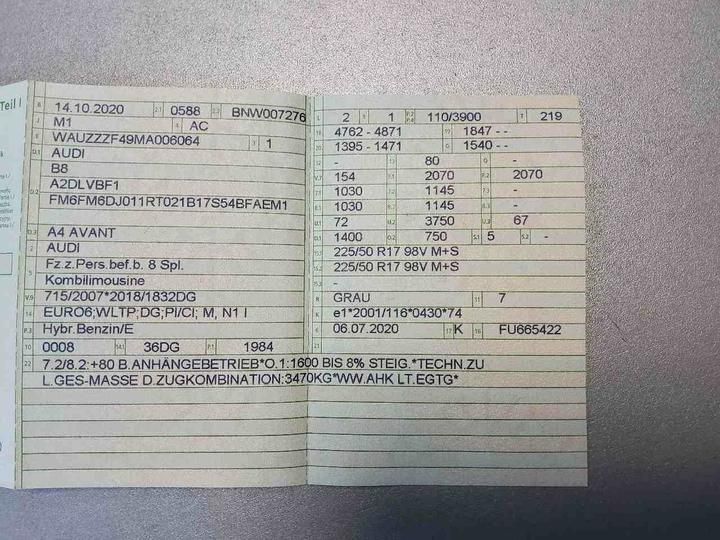 Teil I
B 14.10.2020 2.1 0588 2.2 BNW007276
J M1 4 AC
E WAUZZZF49MA006064 3 1
D.1 AUDI
B8
D.2 A2DLVBF1
FM6FM6DJ011RT021B17S54BFAEM1
D.3 A4 AVANT
2 AUDI
5 Fz.z.Pers.bef.b. 8 Spl.
Kombilimousine
V.9 715/2007*2018/1832DG
14 EURO6;WLTP;DG;PI/CI; M, N1 I
P.3 Hybr.Benzin/E
10 0008 14.1 36DG P.1 1984
22 7.2/8.2:+80 B.ANHÄNGEBETRIEB*O.1:1600 BIS 8% STEIG.*TECHN.ZU
L.GES-MASSE D.ZUGKOMBINATION:3470KG*WW.AHK LT.EGTG*
L 2 9 1 P.2 P.4 110/3900 T 219
18 4762 - 4871 19 1847 - -
20 1395 - 1471 G 1540 - -
12 - 13 80 Q -
V.7 154 F.1 2070 F.2 2070
7.1 1030 7.2 1145 7.3 -
8.1 1030 8.2 1145 8.3 -
U.1 72 U.2 3750 U.3 67
O.1 1400 O.2 750 S.1 5 S.2 -
15.1 225/50 R17 98V M+S
15.2 225/50 R17 98V M+S
15.3 -
R GRAU 11 7
K e1*2001/116*0430*74
6 06.07.2020 17 K 16 FU665422
21